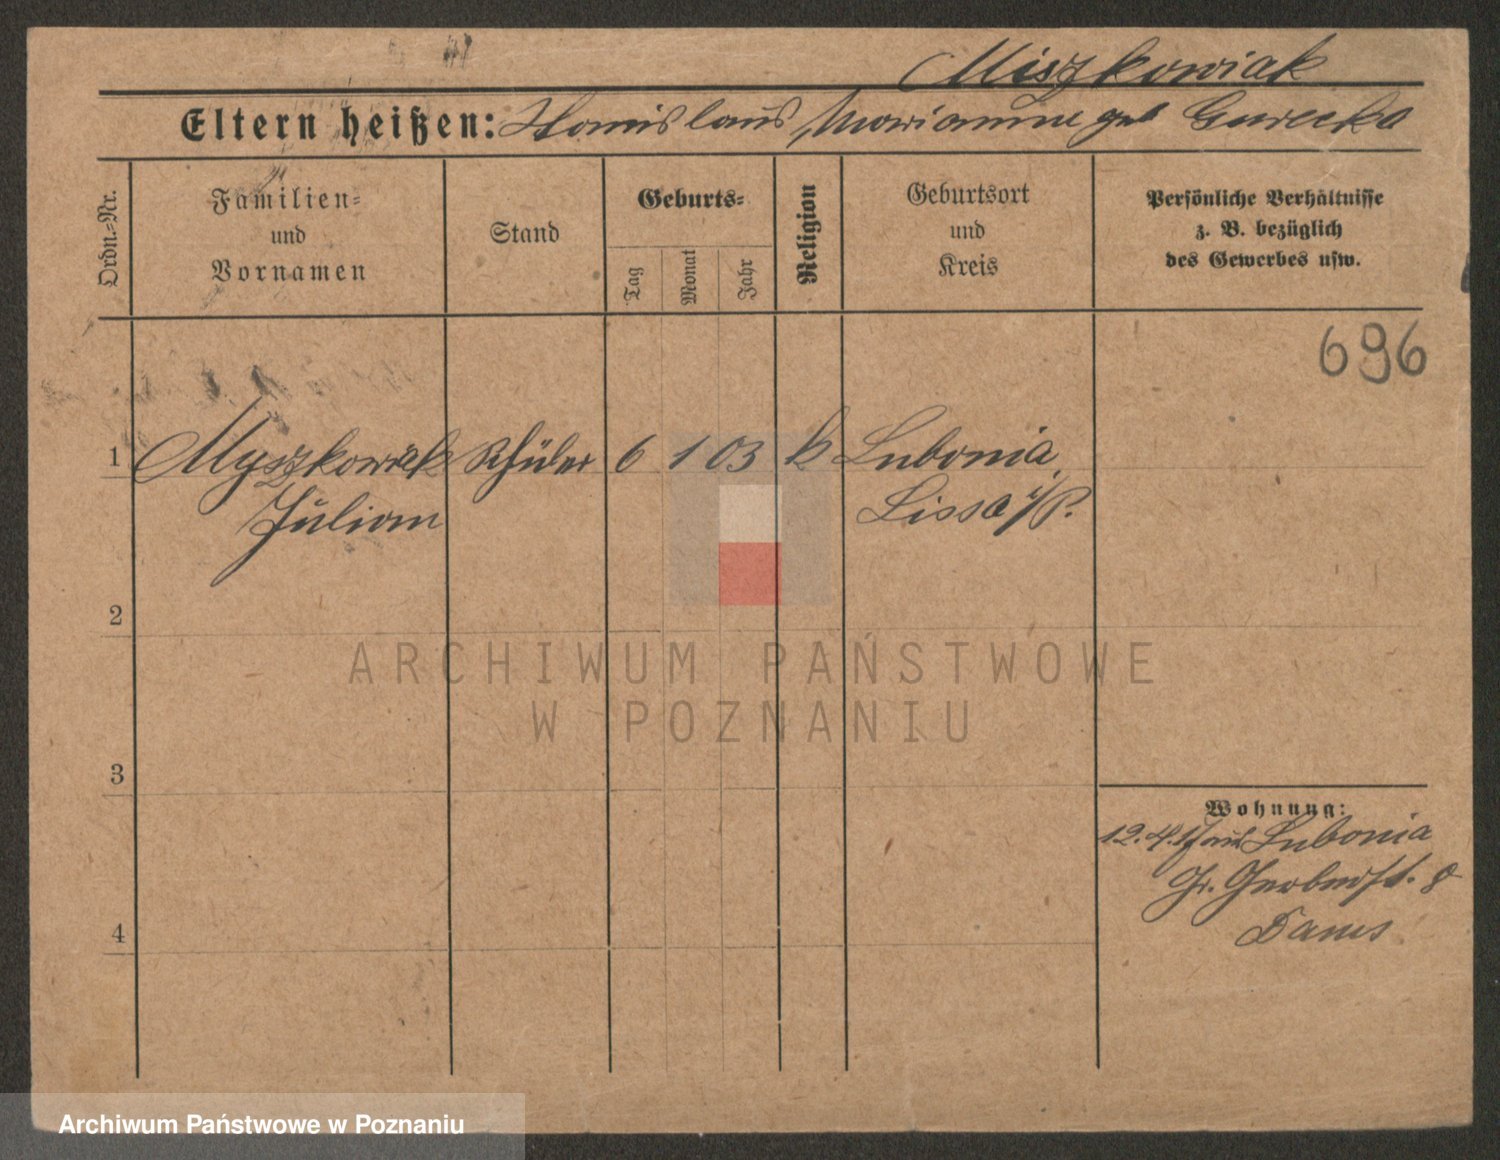 Miszkowiak
Eltern heißen: Stanislaus Marianne geb Gurecka
Ordn.-Nr.
Familien-
und
Vornamen
Stand
Geburts-
Tag
Monat
Jahr
Religion
Geburtsort
und
Kreis
Persönliche Verhältnisse
z. B. bezüglich
des Gewerbes usw.
696
1 Myszkowiak Schüler 6 1 03 k Lubonia,
Julian Lissa i/P.
2
3
4
Wohnung:
12.4.17 aus Lubonia
Gr. Gerberst. 8
ARCHIWUM PAŃSTWOWE
W POZNANIU
Archiwum Państwowe w Poznaniu